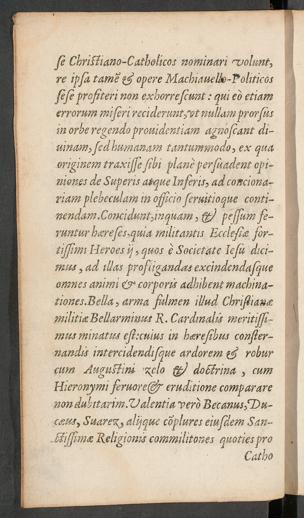 se Christiano-Catholicos nominari volunt,
re ipsa tamẽ & opere Machiavello-Politicos
sese profiteri non exhorrescunt: qui eò etiam
errorum miseri reciderunt, vt nullam prorsus
in orbe regendo prouidentiam agnoscant di-
uinam, sed humanam tantummodo, ex qua
originem traxisse sibi planè persuadent opi-
niones de Superis atque Inferis, ad conciona-
riam plebeculam in officio seruitioque conti-
nendam. Concidunt, inquam, & pessum fe-
runtur hæreses, quia militantis Ecclesiæ for-
tissimi Heroes ij, quos è Societate Iesu dici-
mus, ad illas profligandas excindendasque
omnes animi & corporis adhibent machina-
tiones. Bella, arma fulmen illud Christianæ
militiæ Bellarminus R. Cardinalis meritissi-
mus minatus est: cuius in hæresibus conster-
nandis intercidendisque ardorem & robur
cum Augustini zelo & doctrina, cum
Hieronymi feruore & eruditione comparare
non dubitarim. Valentia verò Becanus, Du-
cæus, Suarez, alijque cõplures eiusdem San-
ctissimæ Religionis commilitones quoties pro
Catho